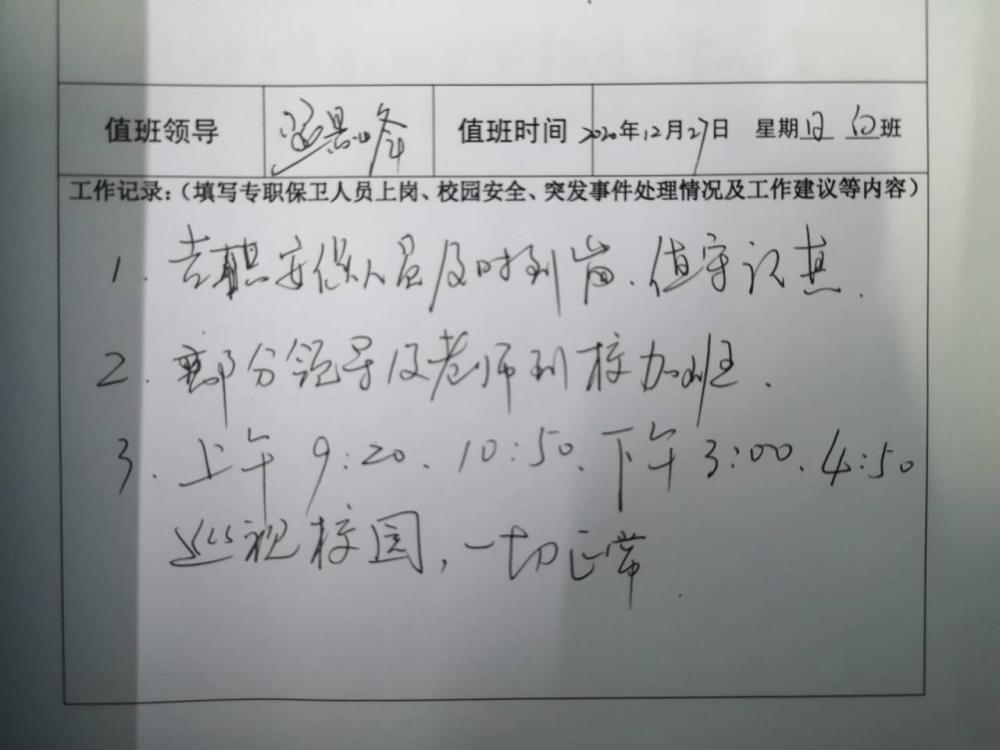 值班领导 值班时间 2020年12月27日 星期日 白班
工作记录:(填写专职保卫人员上岗、校园安全、突发事件处理情况及工作建议等内容)
1. 专职安保人员及时到岗、值守认真.
2. 部分领导及老师到校加班.
3. 上午9:20、10:50、下午3:00、4:50
巡视校园,一切正常.